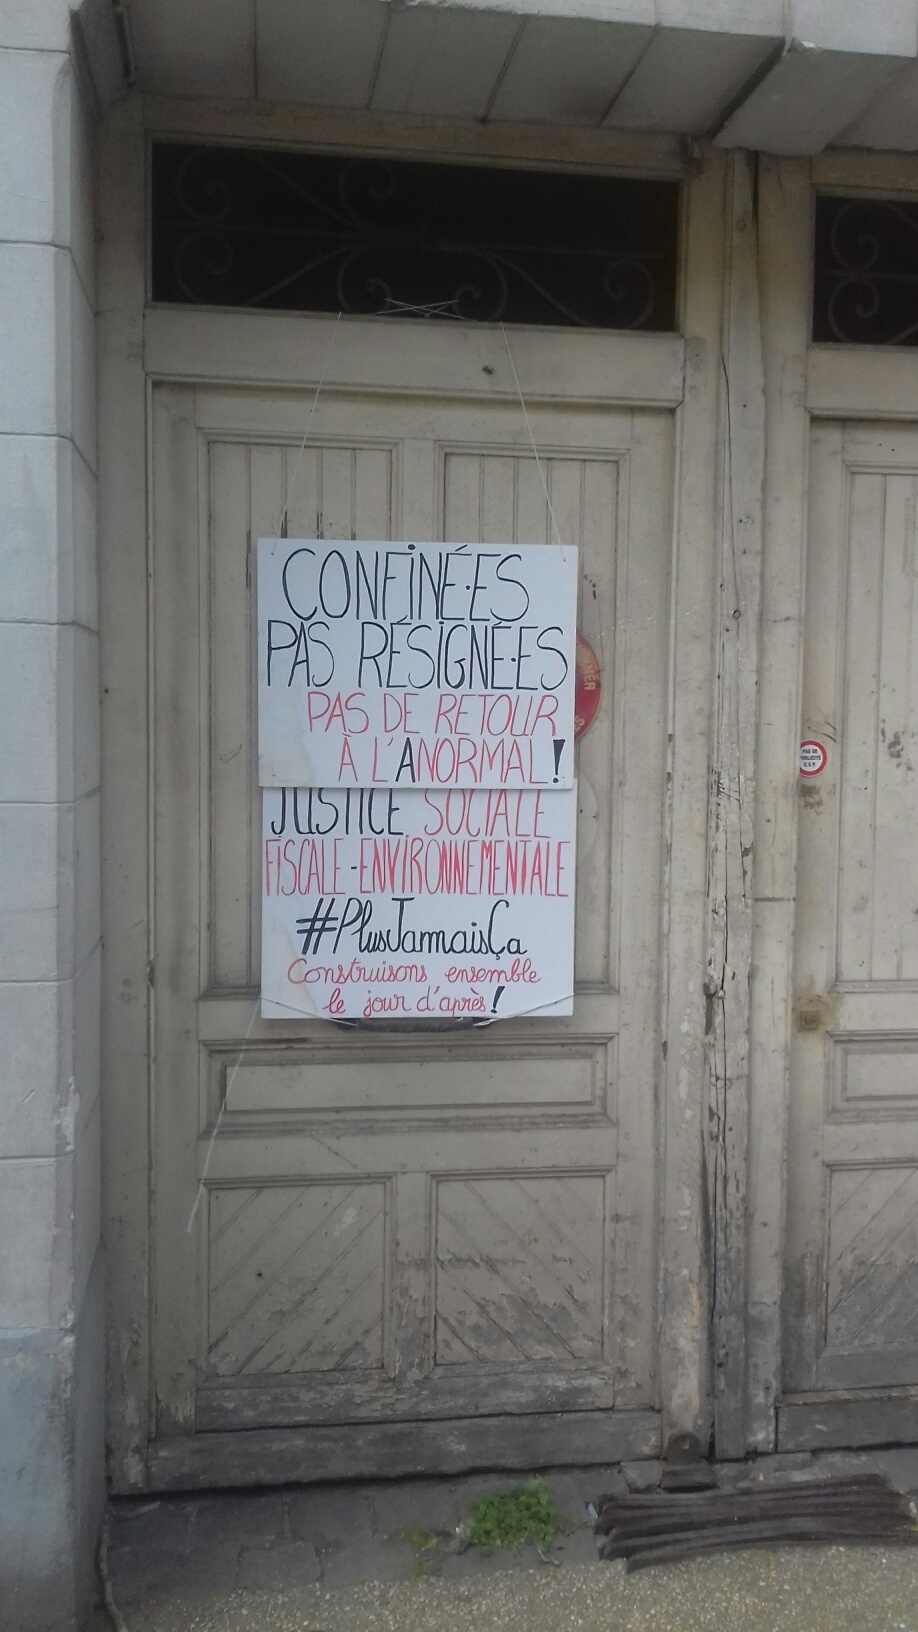 CONFINÉ·ES
PAS RÉSIGNÉ·ES
PAS DE RETOUR
À L'ANORMAL!
JUSTICE SOCIALE
FISCALE-ENVIRONNEMENTALE
#PlusJamaisÇa
Construisons ensemble
le jour d'après!
PAS DE
PUBLICITÉ
S.V.P.